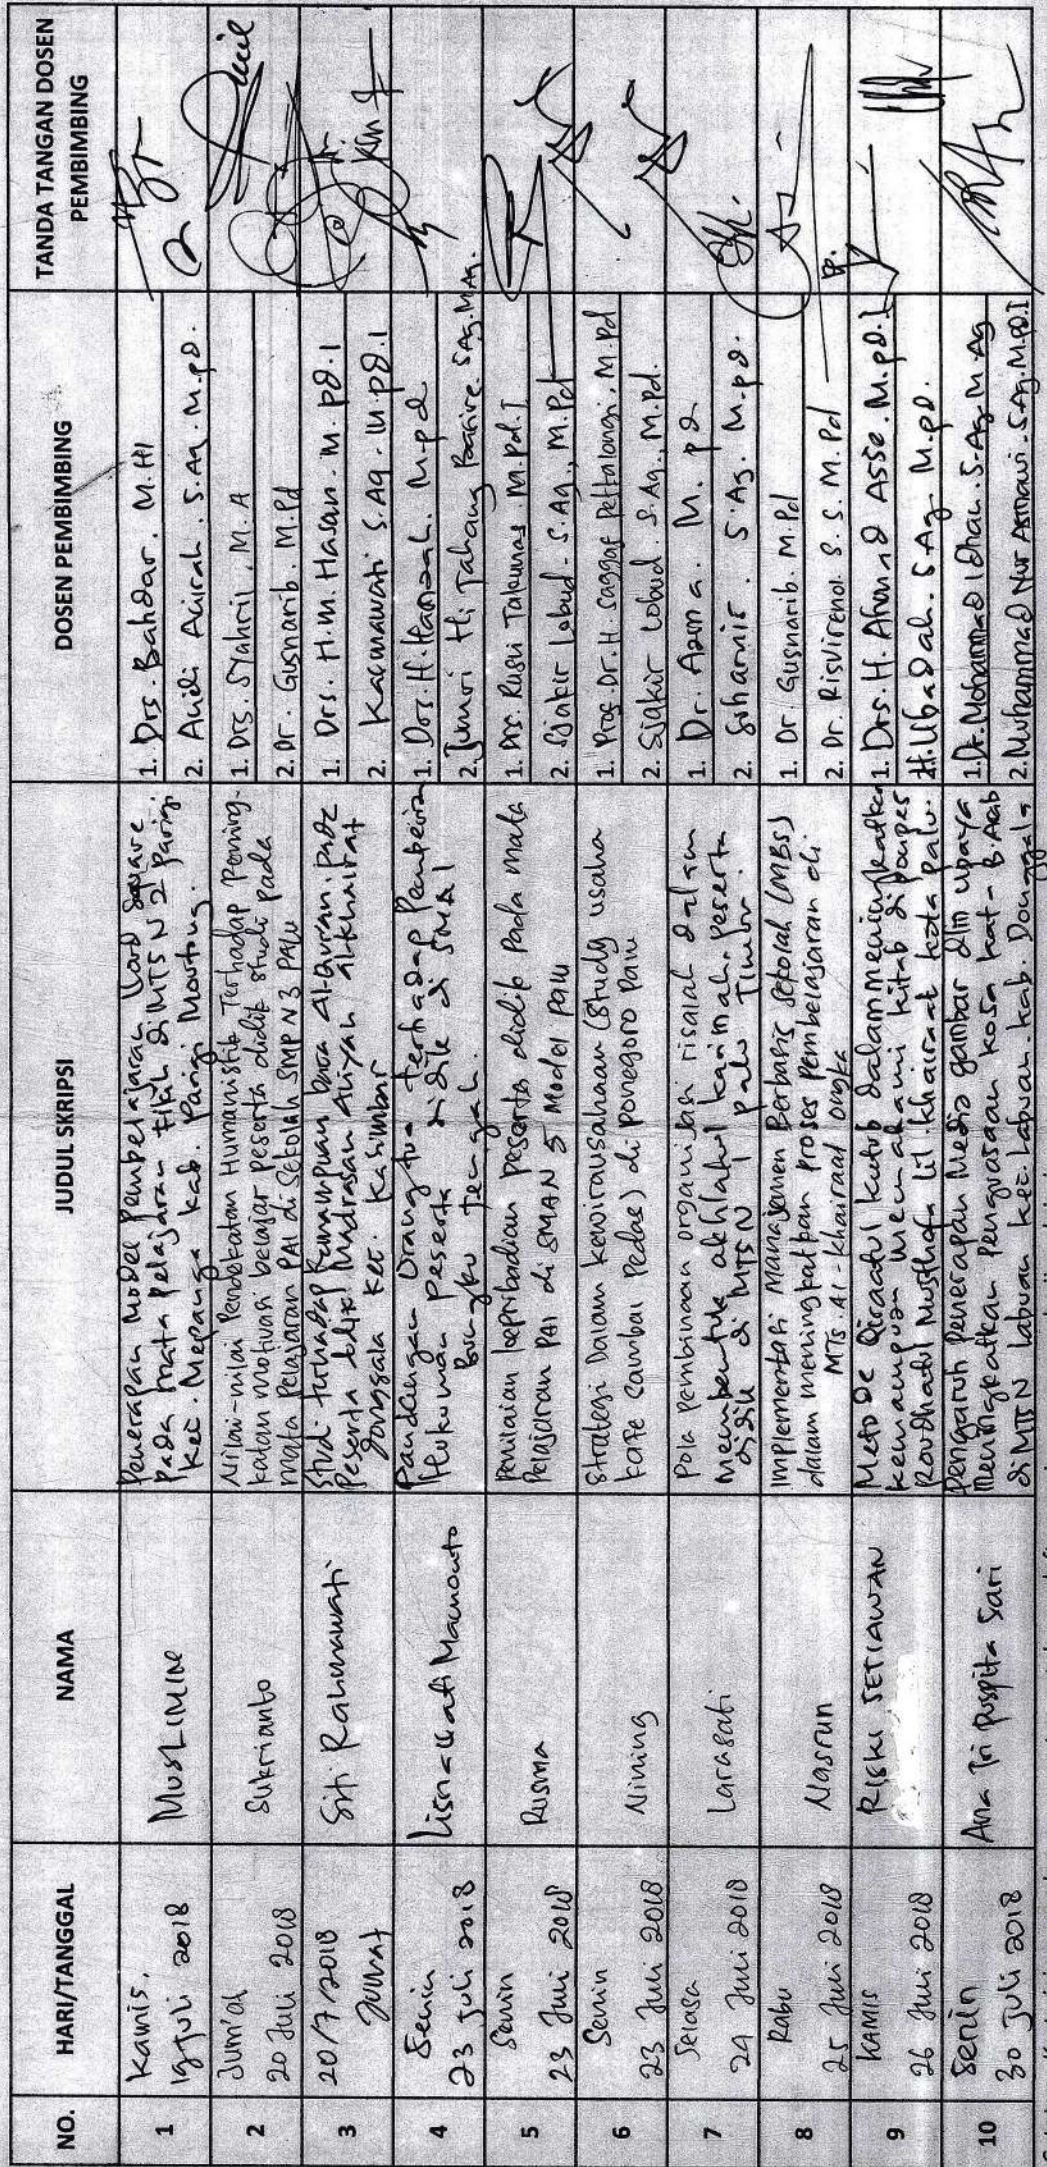 NO.
HARI/TANGGAL
NAMA
JUDUL SKRIPSI
DOSEN PEMBIMBING
TANDA TANGAN DOSEN
PEMBIMBING
1
Kamis,
19 Juli 2018
MUSLIMINE
Penerapan Model Pembelajaran Word Square
pada mata pelajaran fikih di MTS N 2 Parigi
Kec. Mepanga Kab. Parigi Moutong.
1. Drs. Bahdar. M.HI
2. Andi Anirah. S.Ag. M.pd.
2
Jum'at
20 Juli 2018
Sukrianto
Nilai-nilai Pendekatan Humanistik Terhadap Pening-
katan motivasi belajar peserta didik studi pada
mata pelajaran PAI di Sekolah SMP N 3 Palu
1. Drs. Syahril, M.A
2. Dr. Gusnarib. M.Pd
3
20/7/2018
Jumat
Siti Rahmawati
Studi terhadap Kemampuan baca Al-Quran pada
Peserta didik Madrasah Aliyah alkhairat
Donggala Kec. Kasimbar
1. Drs. H.M. Hasan. M. pd.I
2. Kasmawati S.Ag. M.pd.I
4
Senin
23 Juli 2018
Pandangan Orang tua terhadap Pemberian
Hukuman peserta didik di SMA 1
Bungku tengah.
1. Drs. H. Hamzah. M.pd
2. Jumri Hi. Tahang Basire. S.Ag. M.Ag.
5
Senin
23 Juli 2018
Rusma
Penilaian kepribadian peserta didik Pada mata
Pelajaran PAI di SMAN 5 Model Palu
1. Drs. Rusli Takunas. M.Pd.I
2. Sjakir Lobud. S.Ag., M.Pd
6
Senin
23 Juli 2018
Nining
Strategi Dalam kewirausahaan (Study usaha
kafe Sambal Pedas) di Ponegoro Palu
1. Prof. Dr. H. Saggaf Pettalongi, M.Pd
2. Sjakir Lobud. S.Ag., M.Pd.
7
Selasa
24 Juli 2018
Larasati
Pola pembinaan organisasi risalah dalam
membentuk akhlakul karimah peserta
didik di MTSN palu Timur.
1. Dr. Azma. M. pd
2. Suharnis. S.Ag. M.pd.
8
Rabu
25 Juli 2018
Nasrun
Implementasi Manajemen Berbasis Sekolah (MBS)
dalam meningkatkan proses pembelajaran di
MTs. Al-khairaat ongka
1. Dr. Gusnarib. M.Pd
2. Dr. Risvirenol. S. M.Pd
9
KAMIS
26 Juli 2018
RISKI SETIAWAN
Metode Qiraatul kutub dalam meningkatkan
kemampuan memahami kitab di ponpes
Raudhatul Musthafa lil khairaat kota palu.
1. Drs. H. Ahmad Asse. M.pd.I
H. Ubadah. S.Ag. M.pd.
10
Senin
30 Juli 2018
Ana Tri Puspita Sari
Pengaruh Penerapan Media gambar dlm upaya
Meningkatkan Penguasaan kosa kata B. Arab
di MTS N Labuan kec. Labuan. kab. Donggala
1. Dr. Mohammad Idhan. S.Ag. M.Ag
2. Muhammad Nur Asmawi. S.Ag. M.Pd.I